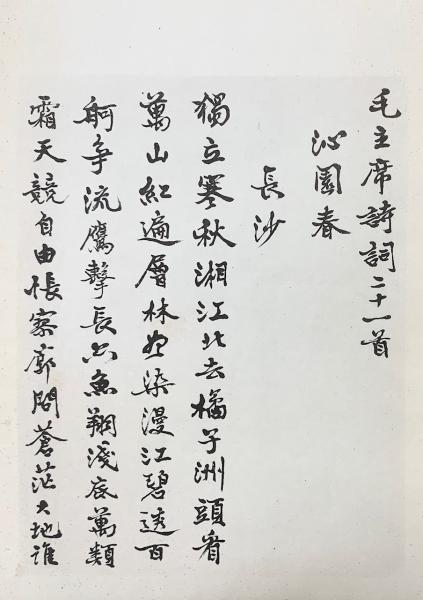 毛主席詩詞二十一首
沁園春
長沙
獨立寒秋湘江北去橘子洲頭看
萬山紅遍層林尽染漫江碧透百
舸争流鷹擊長空魚翔淺底萬類
霜天競自由悵寥廓問蒼茫大地誰